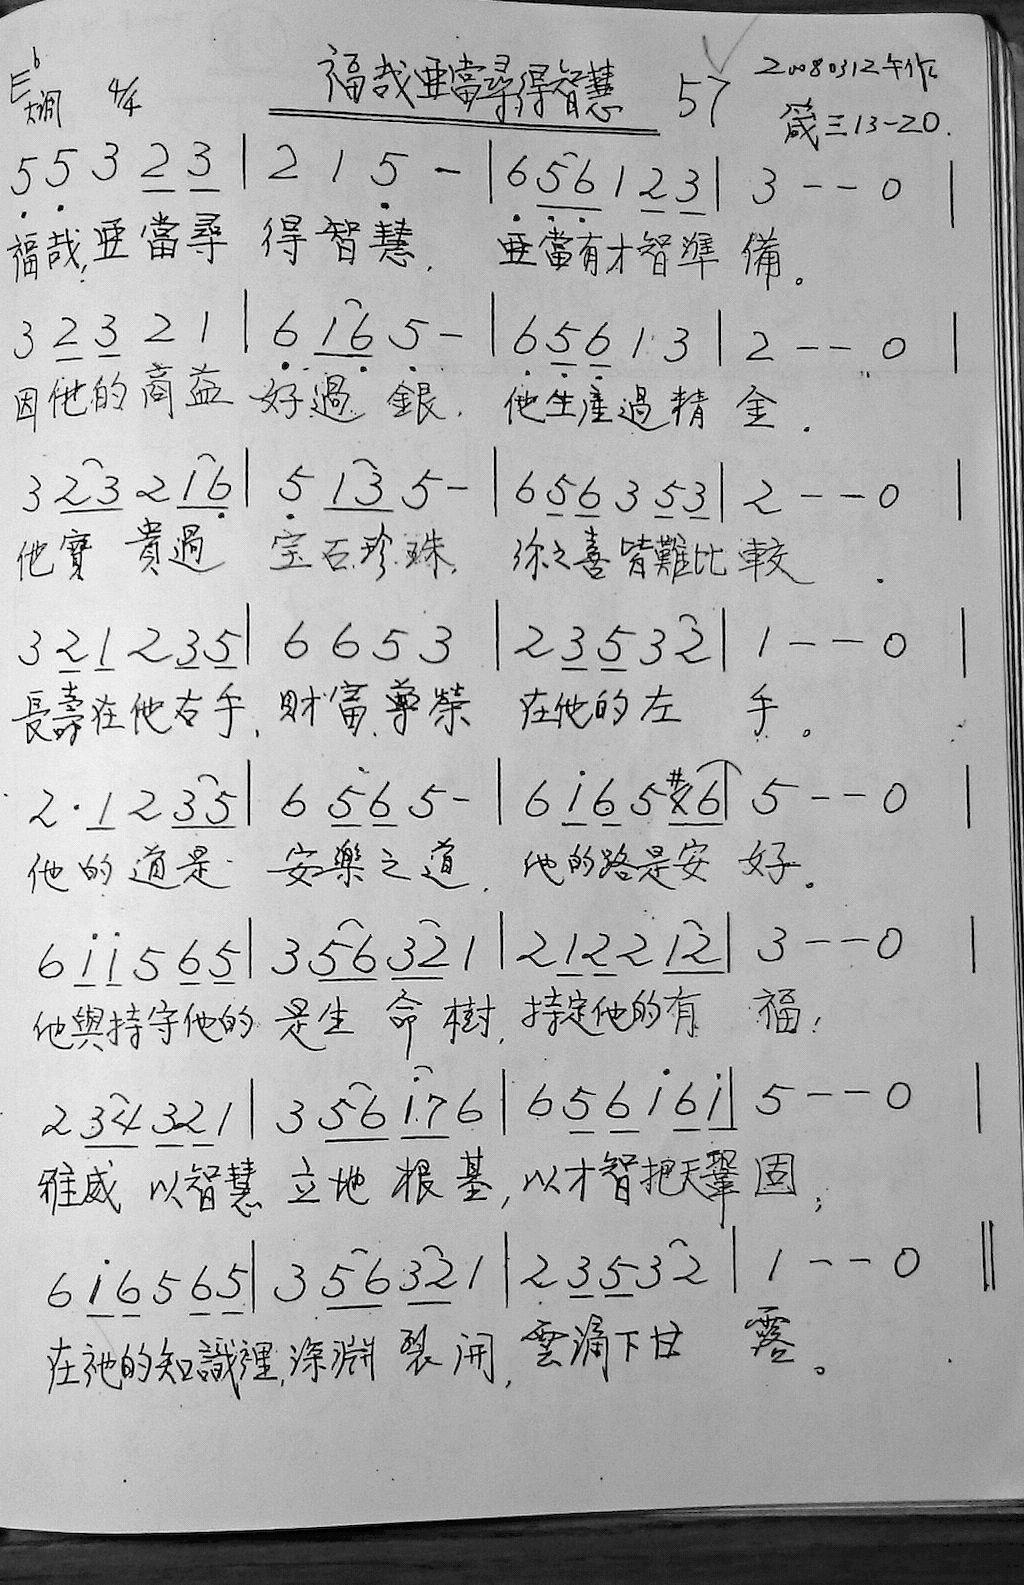 E♭大調 4/4 福哉亜當尋得智慧 57 20080312午作
箴三13-20.
5 5 3 2 3 | 2 1 5 - | 6 5 6 1 2 3 | 3 - - 0 |
福哉,亜當尋 得智慧, 亜當有才智準 備。
3 2 3 2 1 | 6 1 6 5 - | 6 5 6 1 3 | 2 - - 0 |
因他的商益 好過 銀, 他生產過精 金.
3 2 3 2 1 6 | 5 1 3 5 - | 6 5 6 3 5 3 | 2 - - 0 |
他寶 貴過 宝石珍珠, 你之喜皆難比 較.
3 2 1 2 3 5 | 6 6 5 3 | 2 3 5 3 2 | 1 - - 0 |
長壽在他右手, 財富尊榮 在他的左 手。
2 · 1 2 3 5 | 6 5 6 5 - | 6 i 6 5 6 | 5 - - 0 |
他的道是 安樂之道, 他的路是安 好。
6 i i 5 6 5 | 3 5 6 3 2 1 | 2 1 2 2 1 2 | 3 - - 0 |
他與持守他的 是生 命樹, 持定他的有 福;
2 3 4 3 2 1 | 3 5 6 i 7 6 | 6 5 6 i 6 i | 5 - - 0 |
雅威 以智慧 立地 根基, 以才智把天鞏 固;
6 i 6 5 6 5 | 3 5 6 3 2 1 | 2 3 5 3 2 | 1 - - 0 ‖
在祂的知識裡,深淵 裂開, 雲滴下甘 露。